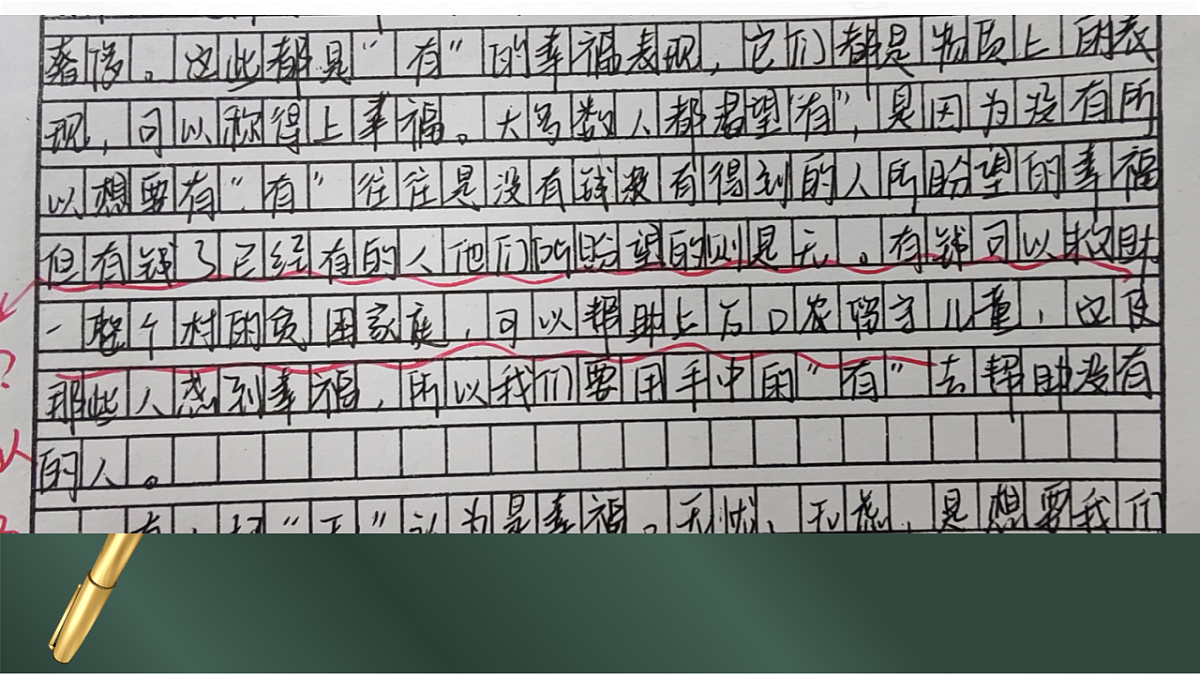 奢侈。这些都是“有”的幸福表现，它们都是物质上的表
现，可以称得上幸福。大多数人都希望“有”，是因为没有所
以想要有“有”往往是没有钱没有得到的人所盼望的幸福
但有钱了已经有的人他们所盼望的则是无。有钱可以救助
一整个村的贫困家庭，可以帮助上万口农留守儿童，这使
那些人感到幸福，所以我们要用手中的“有”去帮助没有
的人。
有人把“无”认为是幸福。无忧、无虑，是想要我们